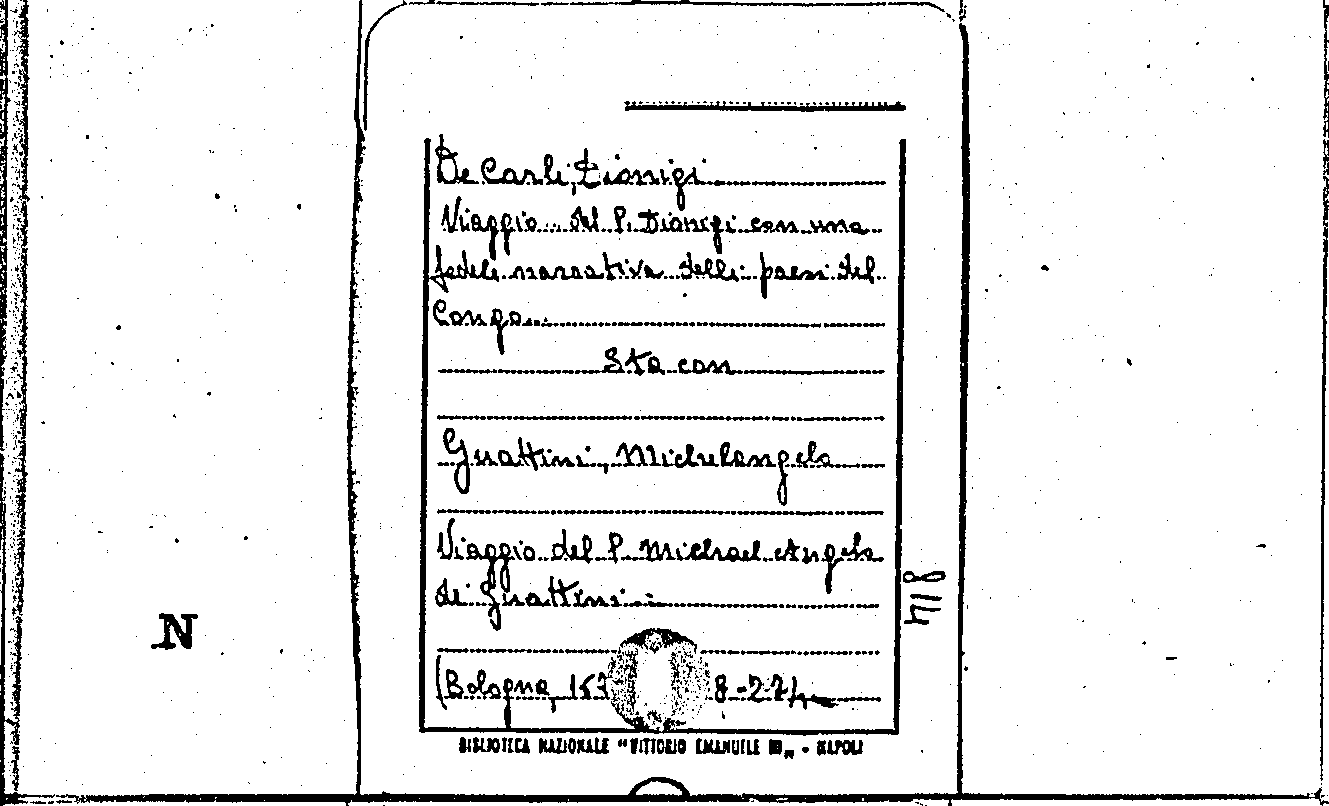 De Carli, Dionigi
Viaggio... del P. Dionigi con una
fedele narrativa delli paesi del
Congo...
Sta con
Guattini, Michelangelo
Viaggio del P. Michael Angelo
de Guattini...
(Bologna, 167 8-27)
BIBLIOTECA NAZIONALE "VITTORIO EMANUELE III" - NAPOLI
814
N